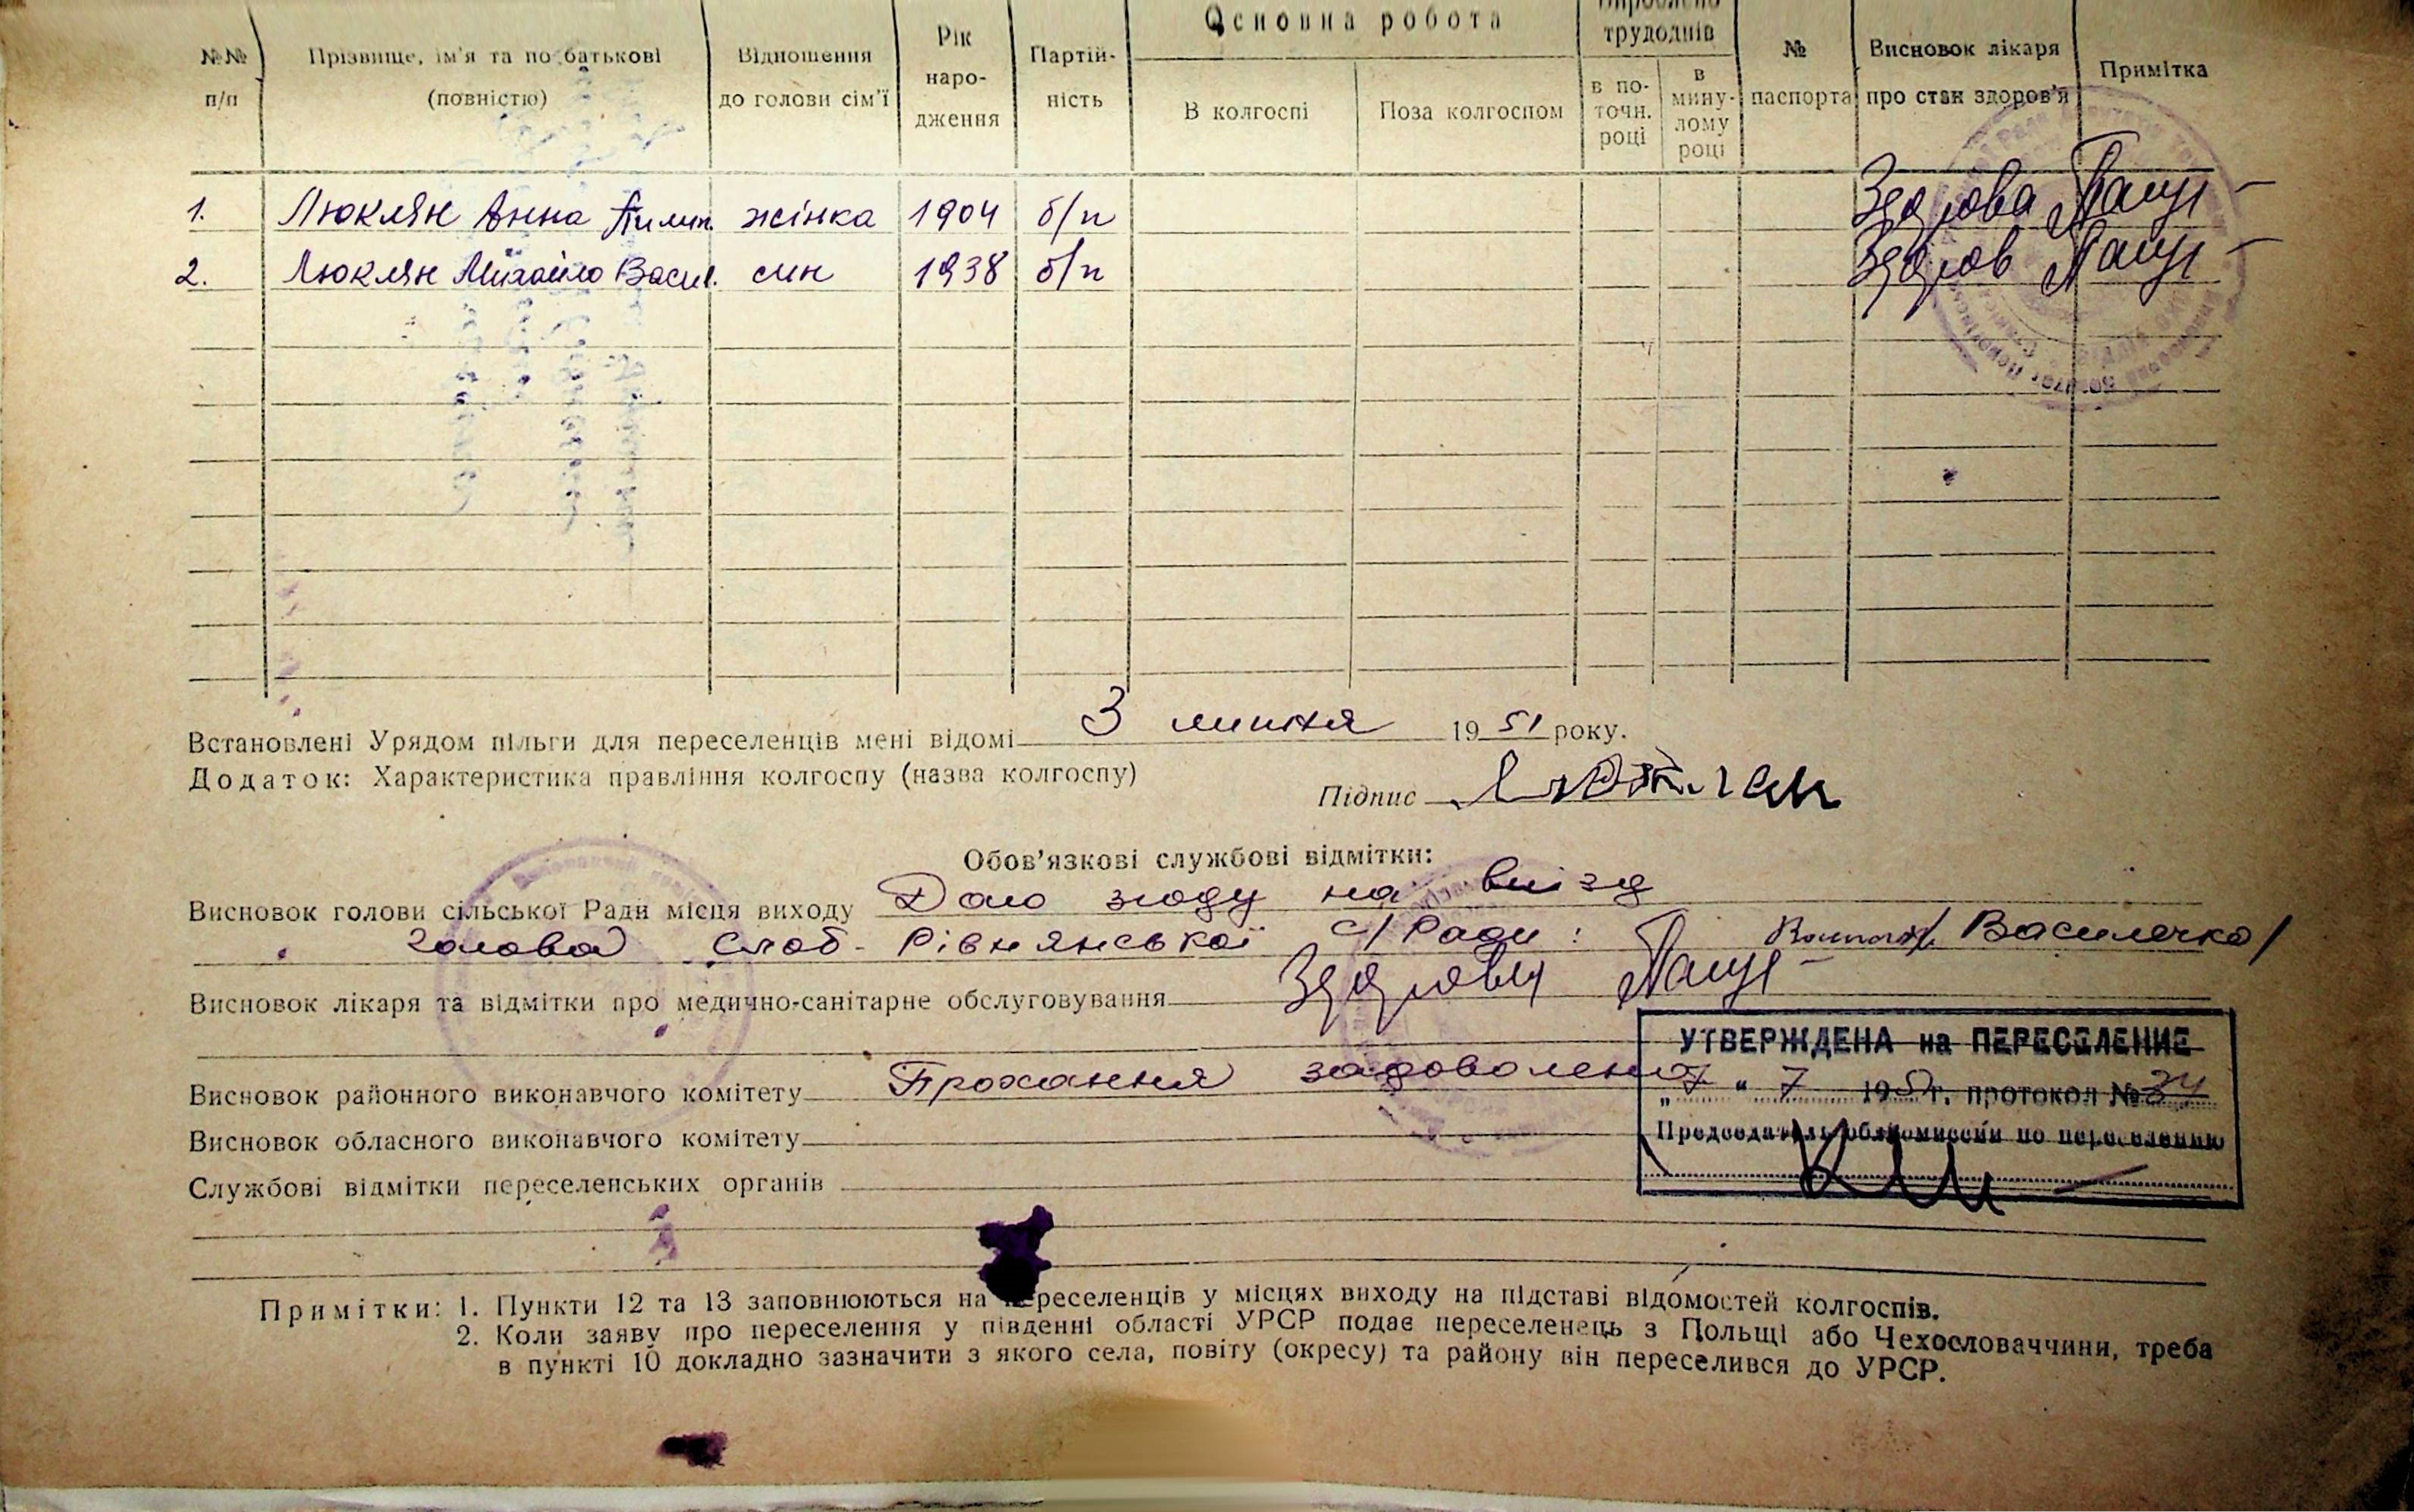 Основна робота
трудоднів
№№ п/п
Прізвище, ім'я та по батькові (повністю)
Відношення до голови сім'ї
Рік народження
Партійність
В колгоспі
Поза колгоспом
в поточн. році
в минулому році
№ паспорта
Висновок лікаря про стан здоров'я
Примітка
1. Люклян Анна Пилип. жінка 1904 б/п Здорова
2. Люклян Михайло Васил. син 1938 б/п Здоров
Встановлені Урядом пільги для переселенців мені відомі 3 липня 1951 року.
Додаток: Характеристика правління колгоспу (назва колгоспу)
Підпис Люклян
Обов'язкові службові відмітки:
Висновок голови сільської Ради місця виходу Даю згоду на виїзд
голова Слоб-Рівнянської с/Ради: /Василечко/
Висновок лікаря та відмітки про медично-санітарне обслуговування Здорові
Висновок районного виконавчого комітету Прохання задоволено
Висновок обласного виконавчого комітету
Службові відмітки переселенських органів
УТВЕРЖДЕНА на ПЕРЕСЕЛЕНИЕ
„7“ 7 1951г. протокол №34
Председатель облкомиссии по переселению
Примітки: 1. Пункти 12 та 13 заповнюються на переселенців у місцях виходу на підставі відомостей колгоспів.
2. Коли заяву про переселення у південні області УРСР подає переселенець з Польщі або Чехословаччини, треба
в пункті 10 докладно зазначити з якого села, повіту (окресу) та району він переселився до УРСР.